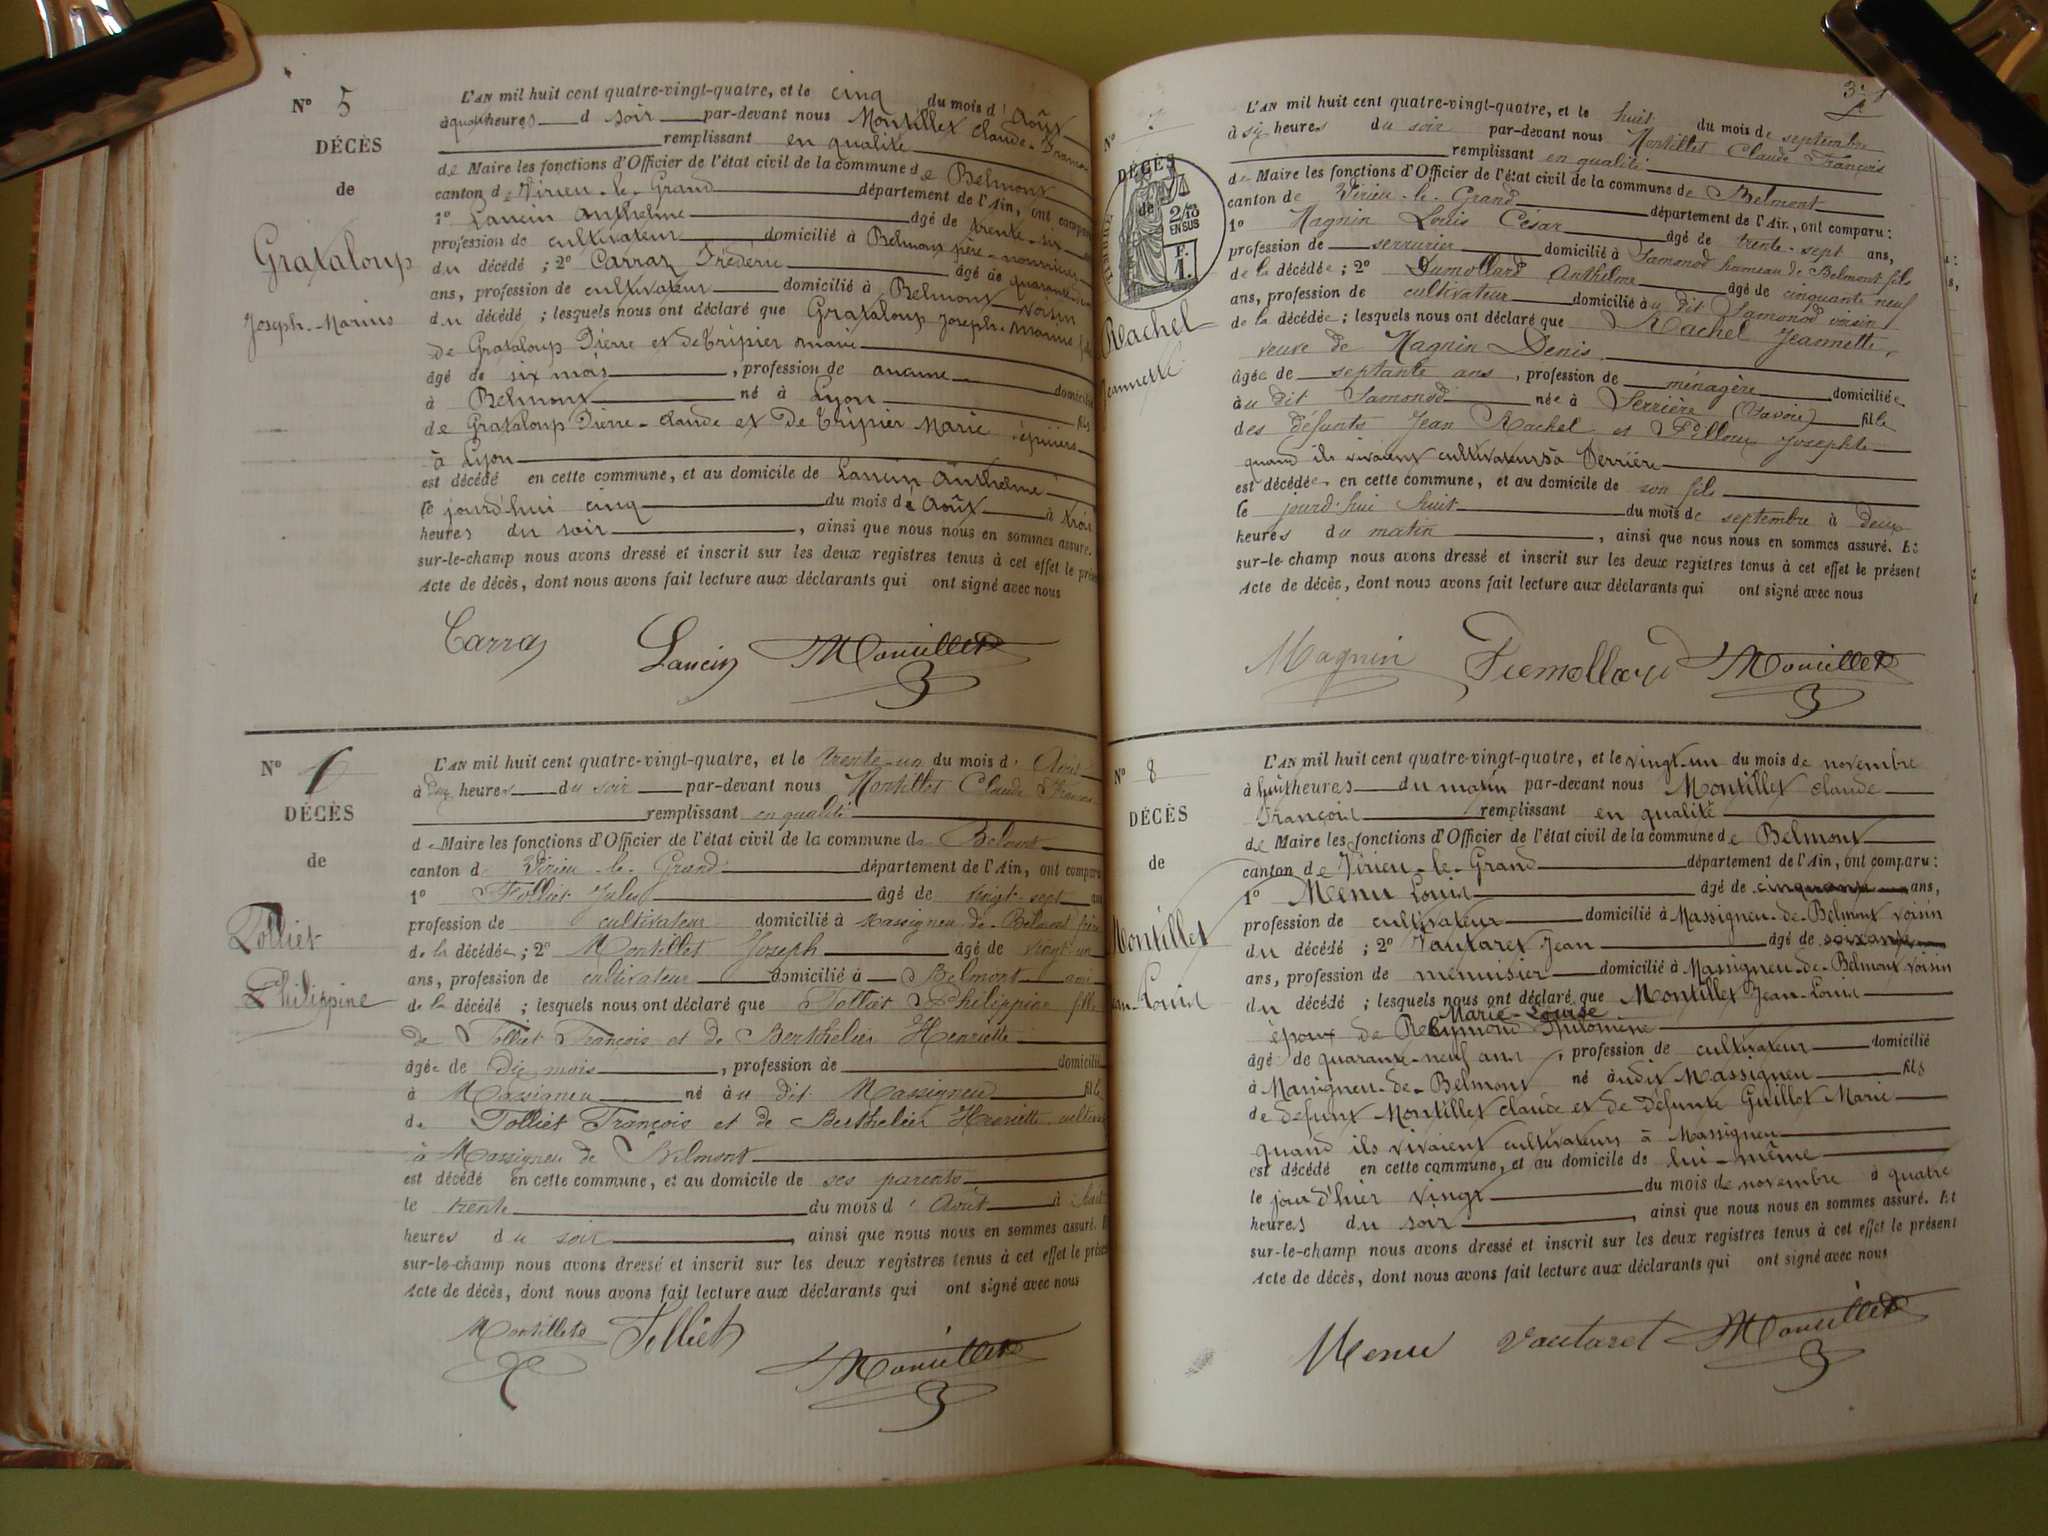 N° 5
DÉCÈS
de
Grataloup
Joseph-Marius
L'AN mil huit cent quatre-vingt-quatre, et le cinq du mois d'Août
à quatre heures d soir par-devant nous Montillet Claude-
remplissant en qualité
de Maire les fonctions d'Officier de l'état civil de la commune de Belmont
canton de Virieu-le-Grand département de l'Ain, ont comparu
1° Lancin Anthelme âgé de trente-six
profession de cultivateur domicilié à Belmont père-nourricier
du décédé ; 2° Carraz Frédéric âgé de quarante
ans, profession de cultivateur domicilié à Belmont voisin
du décédé ; lesquels nous ont déclaré que Grataloup Joseph-Marius fils
de Grataloup Pierre et de Tripier marie
âgé de six mois, profession de aucune domicilié
à Belmont né à Lyon fils
de Grataloup Pierre-claude et De Tripier Marie épiciers
à Lyon
est décédé en cette commune, et au domicile de Lancin Anthelme
le jourd'hui cinq du mois d'Août à trois
heures du soir, ainsi que nous nous en sommes assuré.
sur-le-champ nous avons dressé et inscrit sur les deux registres tenus à cet effet le présent
Acte de décès, dont nous avons fait lecture aux déclarants qui ont signé avec nous
Carraz Lancin Montillet
N° 6
DÉCÈS
de
Tolliet
Philippine
L'AN mil huit cent quatre-vingt-quatre, et le trente-un du mois d'Août
à heures du soir par-devant nous Montillet Claude François
remplissant en qualité
de Maire les fonctions d'Officier de l'état civil de la commune de Belmont
canton de Virieu-le-Grand département de l'Ain, ont comparu
1° Tolliet Jules âgé de vingt-sept ans
profession de cultivateur domicilié à Massigneu-de-Belmont frère
de la décédée ; 2° Montillet Joseph âgé de vingt-un
ans, profession de cultivateur domicilié à Belmont ami
de la décédé ; lesquels nous ont déclaré que Tolliet Philippine fille
de Tolliet François et de Berthelier Henriette
âgée de dix mois, profession de domicilié
à Massigneu né àu dit Massigneu fille
de Tolliet François et de Berthelier Henriette
à Massigneu de Belmont
est décédé en cette commune, et au domicile de ses parents
le trente du mois d'Août à huit
heures du soir, ainsi que nous nous en sommes assuré.
sur-le-champ nous avons dressé et inscrit sur les deux registres tenus à cet effet le présent
Acte de décès, dont nous avons fait lecture aux déclarants qui ont signé avec nous
Montillet Tolliet
Montillet
N° 7
DÉCÈS
de
TIMBRE
2/10 EN SUS
F.
1.
Rachel
Jeannette
L'AN mil huit cent quatre-vingt-quatre, et le huit du mois de septembre
à six heures du soir par-devant nous Montillet Claude François
remplissant en qualité
de Maire les fonctions d'Officier de l'état civil de la commune de Belmont
canton de Virieu-le-Grand département de l'Ain, ont comparu :
1° Magnin Louis César âgé de trente-sept ans,
profession de serrurier domicilié à Samonod hameau de Belmont fils
de la décédée ; 2° Dumollard Anthelme âgé de cinquante neuf
ans, profession de cultivateur domicilié àu dit Samonod voisin
de la décédée ; lesquels nous ont déclaré que Rachel Jeannette,
veuve de Magnin Denis
âgée de septante ans, profession de ménagère domiciliée
àu dit Samonod née à Serrière (Savoie) fille
des défunts Jean Rachel et Pilloux Josephte
quand ils vivaient cultivateurs à Serrière
est décédée en cette commune, et au domicile de son fils
le jourd'hui huit du mois de septembre à deux
heures du matin, ainsi que nous nous en sommes assuré. Et
sur-le-champ nous avons dressé et inscrit sur les deux registres tenus à cet effet le présent
Acte de décès, dont nous avons fait lecture aux déclarants qui ont signé avec nous
Magnin Dumollard Montillet
N° 8
DÉCÈS
de
Montillet
Jean-Louis
L'AN mil huit cent quatre-vingt-quatre, et le vingt-un du mois de novembre
à huit heures du matin par-devant nous Montillet claude
François remplissant en qualité
de Maire les fonctions d'Officier de l'état civil de la commune de Belmont
canton de Virieu-le-Grand département de l'Ain, ont comparu :
1° Menu Louis âgé de cinquante ans,
profession de cultivateur domicilié à Massigneu-de-Belmont voisin
du décédé ; 2° Vautaret Jean âgé de soixante
ans, profession de menuisier domicilié à Massigneu-de-Belmont voisin
du décédé ; lesquels nous ont déclaré que Montillet Jean-Louis
Marie-Louise
époux de Reymond Antoinine
âgé de quarante-neuf ans, profession de cultivateur domicilié
à Massigneu-de-Belmont né àudit Massigneu fils
de defunt Montillet claude et de défunte Guillot Marie
quand ils vivaient cultivateurs à Massigneu
est décédé en cette commune, et au domicile de lui-même
le jour d'hier vingt du mois de novembre à quatre
heures du soir, ainsi que nous nous en sommes assuré. Et
sur-le-champ nous avons dressé et inscrit sur les deux registres tenus à cet effet le présent
Acte de décès, dont nous avons fait lecture aux déclarants qui ont signé avec nous
Menu Vautaret Montillet